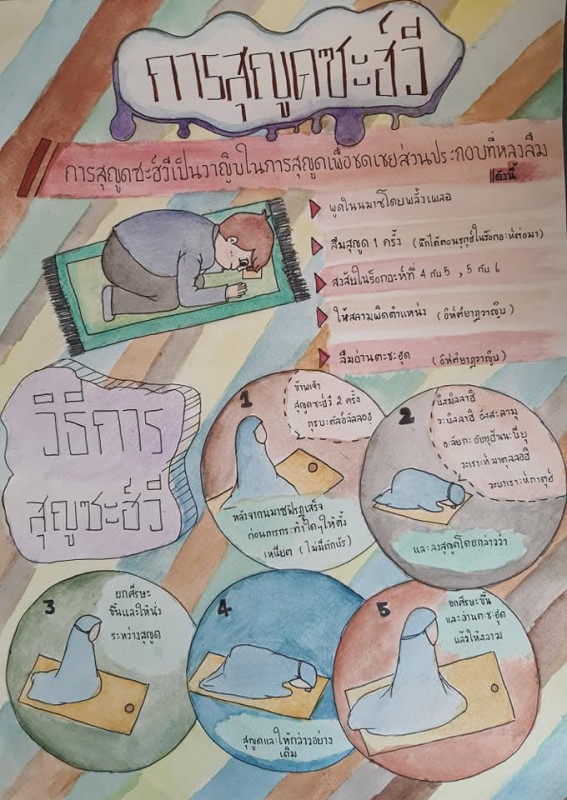 การสุญูดซะฮ์วี
การสุญูดซะฮ์วีเป็นวาญิบในการสุญูดเพื่อชดเชยส่วนประกอบที่หลงลืม
ดังนี้
พูดในนมาซโดยพลั้งเผลอ
ลืมสุญูด 1 ครั้ง (นึกได้ตอนรุกูอ์ในร็อกอะห์ต่อมา)
สงสัยในร็อกอะห์ที่ 4 กับ 5 , 5 กับ 6
ให้สลามผิดตำแหน่ง (อิห์ติยาฏวาญิบ)
ลืมอ่านตะชะฮุด (อิห์ติยาฏวาญิบ)
วิธีการ
สุญูซะฮ์วี
1
ข้าพเจ้า
สุญูดซะฮ์วี 2 ครั้ง
กุรบะตัลอิลัลลอฮ
หลังจากนมาซฟัรฎูเสร็จ
ก่อนการกระทำใดๆให้ตั้ง
เหนียต (ไม่มีตักบีร)
2
บิสมิลลาฮิ
วะบิลลาฮิ อัสสะลามุ
อะลัยกะ อัยยุฮันนะบียุ
วะเราะห์มาตุลลอฮิ
วะบาเราะห์กาตุฮ์
และลงสุญูดโดยกล่าวว่า
3
ยกศีรษะ
ขึ้นและให้นั่ง
ระหว่างสุญูด
4
สุญูดและให้กล่าวอย่าง
เดิม
5
ยกศีรษะขึ้น
และอ่านตะชะฮุด
แล้วให้สลาม